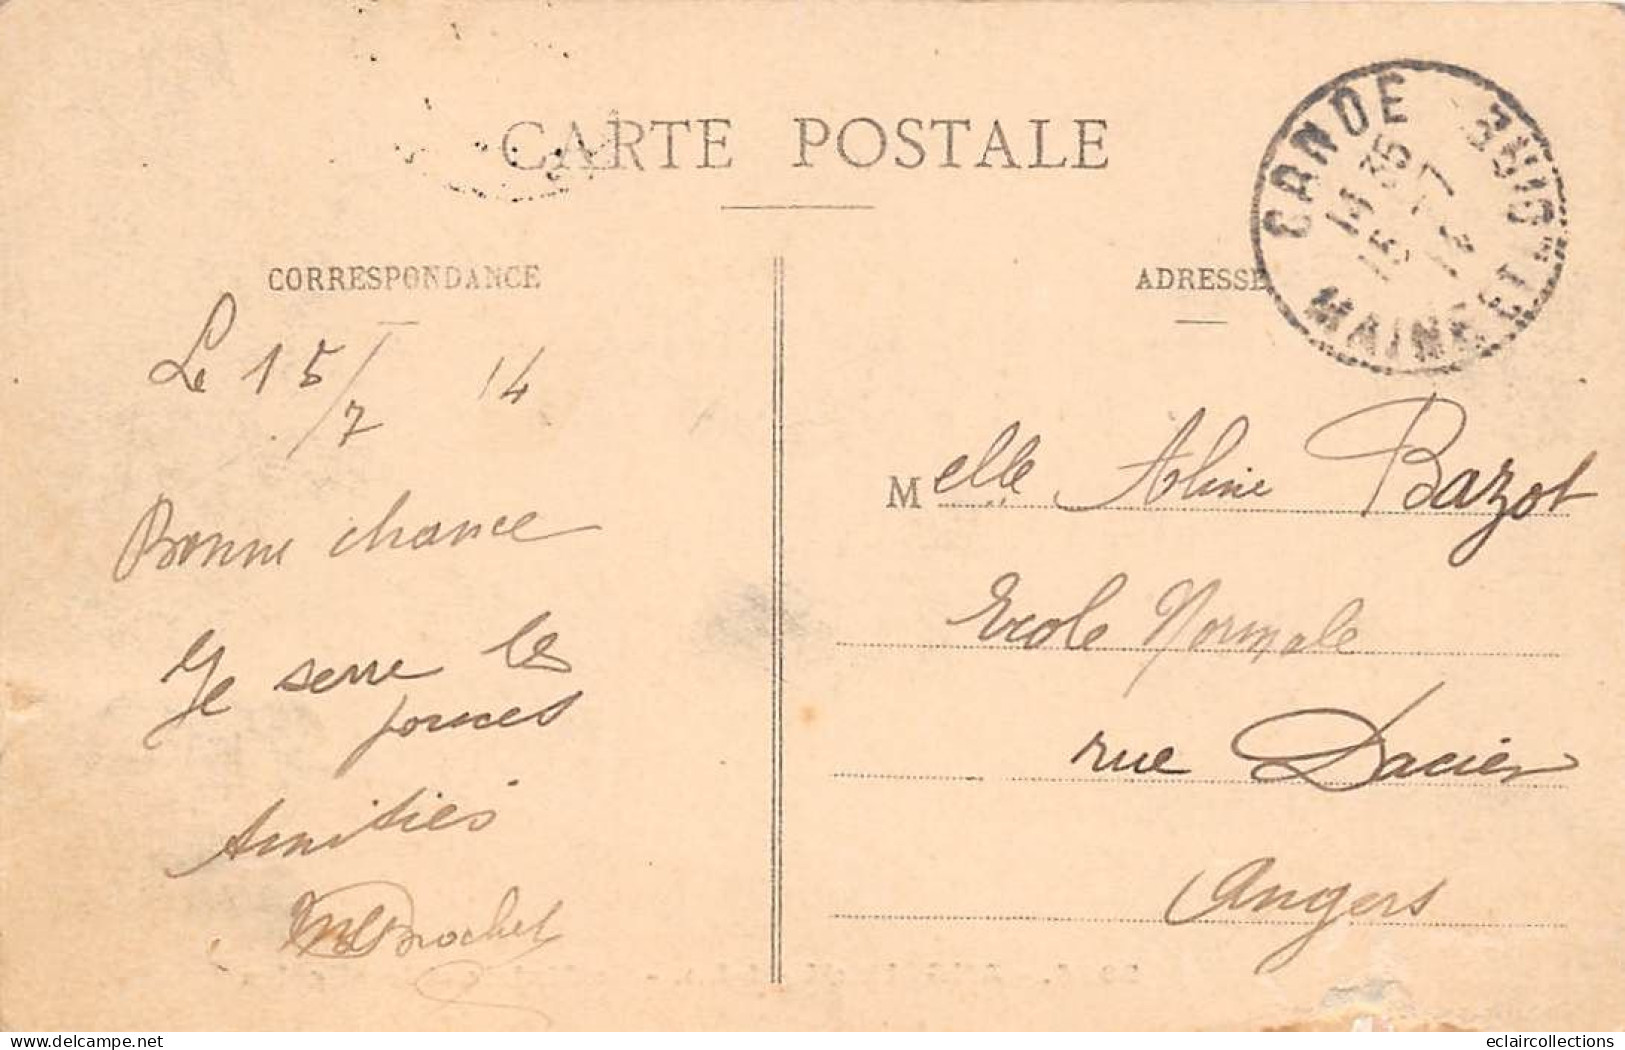 CARTE POSTALE
CORRESPONDANCE
Le 15/7 14
Bonne chance
Je serre les
pouces
Amitiés
Brochet
ADRESSE
CANDE
14 35
15 -7
14
MAINE ET
Melle Aline Bazot
Ecole Normale
rue Dacier
Angers
delcampe.net
eclaircollections